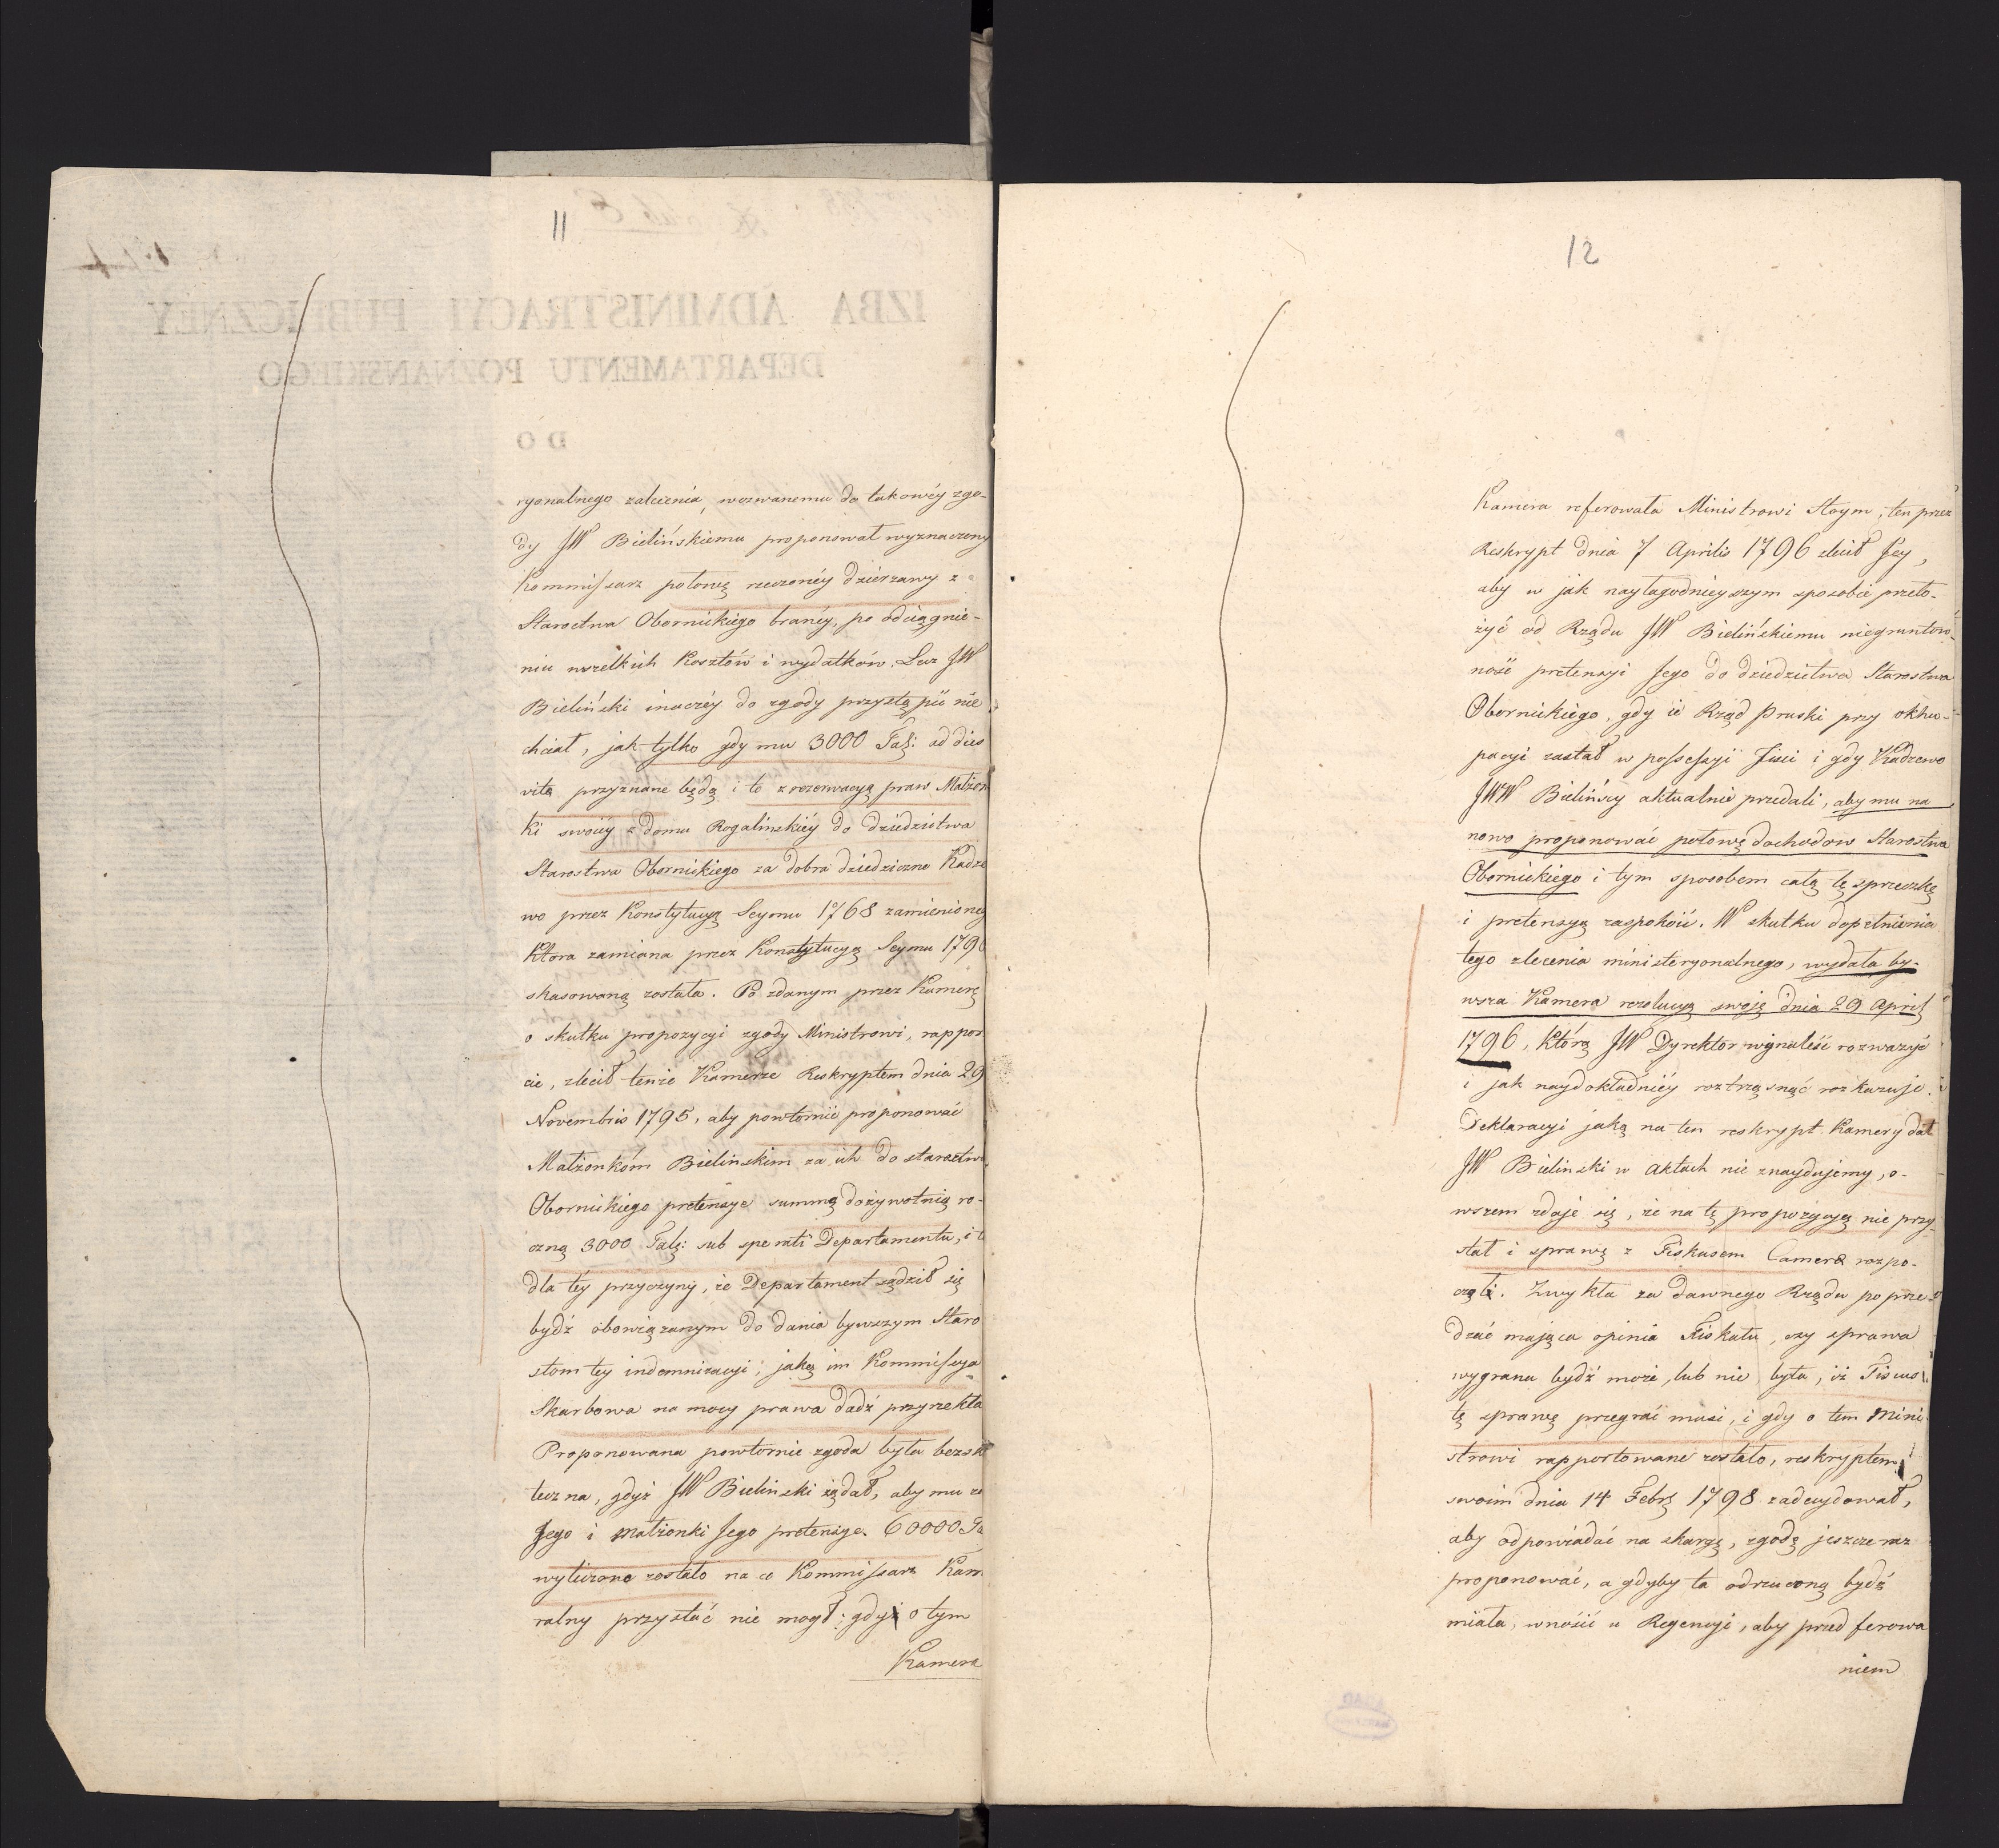 11
ryonalnego zalecenia, wezwanemu do takowéy zgo-
dy JW Bielińskiemu proponował wyznaczony
Kommissarz połowę rzeczonéy dzierzawy z
Starostwa Obornickiego branéy, po odciągnie-
niu wszelkich Kosztów i wydatków. Lecz JW
Bieliński inaczéy do zgody przystąpić nie
chciał, jak tylko gdy mu 3000 Tal: ad dies
vitæ przyznane będą i to z rezerwacyą praw Małżon
ki swoiéy z domu Rogalinskiéy do dziedzictwa
Starostwa Obornickiego za dobra dziedziczne Kadze
wo przez Konstytucyą Seymu 1768 zamienioney
Ktora zamiana przez Konstytucyą Seymu 1790
skasowaną została. Po zdanym przez Kamerę
o skutku propozycyi zgody Ministrowi, rappor
cie, zlecił tenże Kamerze Reskryptem dnia 29
Novembris 1795, aby powtornie proponować
Małżonkóm Bielinskim za ich do starostwa
Obornickiego pretensye summę dożywotnią ro-
czną 3000 Tal: sub spe rati Departamentu, i t
dla téy przyczyny, że Departament sądził się
bydź obowiązanym do dania bywszym Staro
stom tey indemnizacyi, jaką im Kommissya
Skarbowa na mocy prawa dadź przyrzekła
Proponowana powtornie zgoda była bezsk
teczna, gdyż JW Bielinski żądał, aby mu za
Jego i małżonki Jego pretensye 60000 Ta
wyliczone zostało na co Kommissarz Kam
ralny przystać nie mogł; gdyż o tym
Kamera
12
Kamera referowała Ministrowi Hoym, ten przez
Reskrypt dnia 7 Aprilis 1796 zlecił Jey,
aby w jak nayłagodnieyszym sposobie przeło-
żyć od Rządu JW Bielińskiemu niegruntow
ność pretensyi Jego do dziedzictwa Starostwa
Obornickiego, gdy ie Rząd Pruski przy okku-
pacyi zastał w possessyi Fisci i gdy Kadzewo
JWW Bielińscy aktualnie przedali, aby mu na
nowo proponować połowę dochodow Starostwa
Obornickiego i tym sposobem całą tę sprzeczkę
i pretensyą zaspokoić. W skutku dopełnienia
tego zlecenia ministeryonalnego, wydała by-
wsza Kamera rezolucyą swoję dnia 29 April
1796, którą JW Dyrektor wynaleść rozważyć
i jak naydokładniéy roztrząsnąć rozkazuje.
Deklaracyi jaką na ten reskrypt Kamery dał
JW Bielinski w aktach nie znaydujemy, o-
wszem zdaje się, że na tę propozycyą nie przy-
stał i sprawę z Fiskusem Camera rozpo-
częła. Zwykła za dawnego Rządu poprze-
dzać mająca opinia Fiskału, czy sprawa
wygrana bydź może, lub nie była, iż Fiscus
tę sprawę przegrać musi, i gdy o tem Mini
strowi rapportowane zostało, reskryptem
swoim dnia 14 Febr 1798 zadecydował,
aby odpowiadać na skargę, zgodę jeszcze raz
proponować, a gdyby ta odrzuconą bydź
miała, wnośić u Regencyi, aby przed ferowa
niem